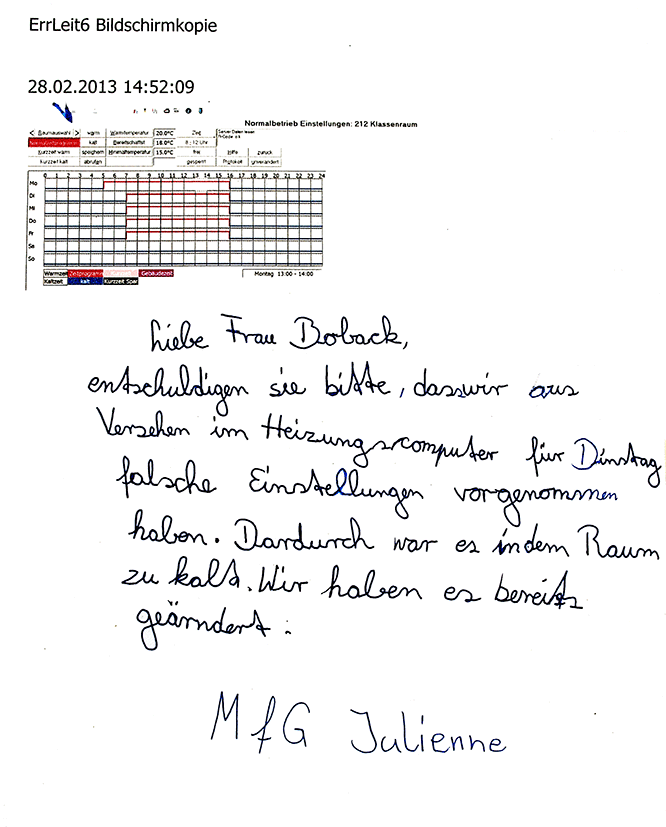 ErrLeit6 Bildschirmkopie
28.02.2013 14:52:09
Normalbetrieb Einstellungen: 212 Klassenraum
< Raumauswahl > warm Warmtemperatur 20.0°C Zieg Server Daten lesen
Normalzeitprogramm kalt Bereitschaftst 18.0°C 8:12 Uhr
Kurzzeit warm speichern Minimaltemperatur 15.0°C frei Hilfe zurück
Kurzzeit kalt abrufen gesperrt Protokoll unverändert
0 1 2 3 4 5 6 7 8 9 10 11 12 13 14 15 16 17 18 19 20 21 22 23 24
Mo
Di
Mi
Do
Fr
Sa
So
Warmzeit Zeitprogramm Gebäudezeit Montag 13:00 - 14:00
Kaltzeit kalt Kurzzeit Spar
Liebe Frau Boback,
entschuldigen sie bitte, dasswir aus
Versehen im Heizungscomputer für Dinstag
falsche Einstellungen vorgenommen
haben. Dardurch war es indem Raum
zu kalt. Wir haben es bereits
geärndert.
MfG Julienne